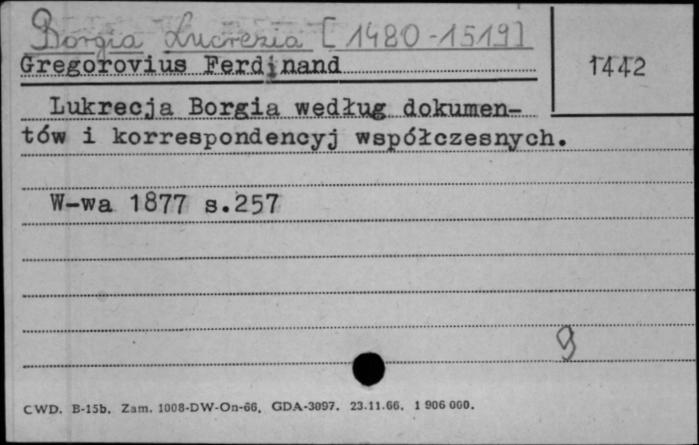 Borgia Lucrezia [1480-1519]
Gregorovius Ferdinand
1442
Lukrecja Borgia według dokumen-
tów i korrespondencyj współczesnych.
W-wa 1877 s.257
9
CWD. B-15b. Zam. 1008-DW-On-66. GDA-3097. 23.11.66. 1 906 000.